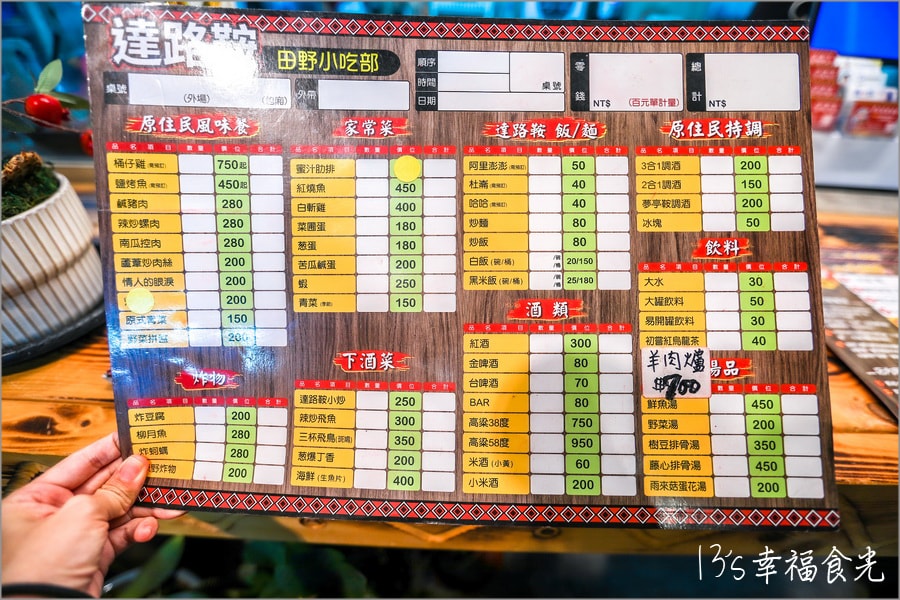 達路鞍
田野小吃部
桌號 (外場) (包廂) 外帶
順序
時間 桌號
日期
零錢 NT$ (百元單計量)
總計 NT$
原住民風味餐
品名項目 數量 價位 合計
桶仔雞(需預訂) 750起
鹽烤魚(需預訂) 450起
鹹豬肉 280
辣炒螺肉 280
南瓜控肉 280
蘆葦炒肉絲 200
情人的眼淚 200
200
原式青菜 150
野菜拼盤 200
炸物
品名項目 數量 價位 合計
炸豆腐 200
柳月魚 280
炸蝈蟎 280
野炸物 200
家常菜
品名項目 數量 價位 合計
蜜汁肋排
紅燒魚 450
白斬雞 400
菜圃蛋 180
蔥蛋 180
苦瓜鹹蛋 200
蝦 250
青菜(季節) 150
下酒菜
品名項目 數量 價位 合計
達路鞍小炒 250
辣炒飛魚 300
三杯飛鳥(斑鳩) 350
蔥爆丁香 200
海鮮(生魚片) 400
達路鞍 飯/麵
品名項目 數量 價位 合計
阿里澎澎(需預訂) 50
杜崙(需預訂) 40
哈哈(需預訂) 40
炒麵 80
炒飯 80
白飯(碗/桶) /碗 /桶 20/150
黑米飯(碗/桶) /碗 /桶 25/180
酒類
品名項目 數量 價位 合計
紅酒 300
金啤酒 80
台啤酒 70
BAR 80
高粱38度 750
高粱58度 950
米酒(小黃) 60
小米酒 200
原住民特調
品名項目 數量 價位 合計
3合1調酒 200
2合1調酒 150
夢亭鞍調酒 200
冰塊 50
飲料
品名項目 數量 價位 合計
大水 30
大罐飲料 50
易開罐飲料 30
初嘗紅烏龍茶 40
羊肉爐
$700
湯品
價位 合計
鮮魚湯 450
野菜湯 200
樹豆排骨湯 350
藤心排骨湯 450
雨來菇蛋花湯 200
13's幸福食光